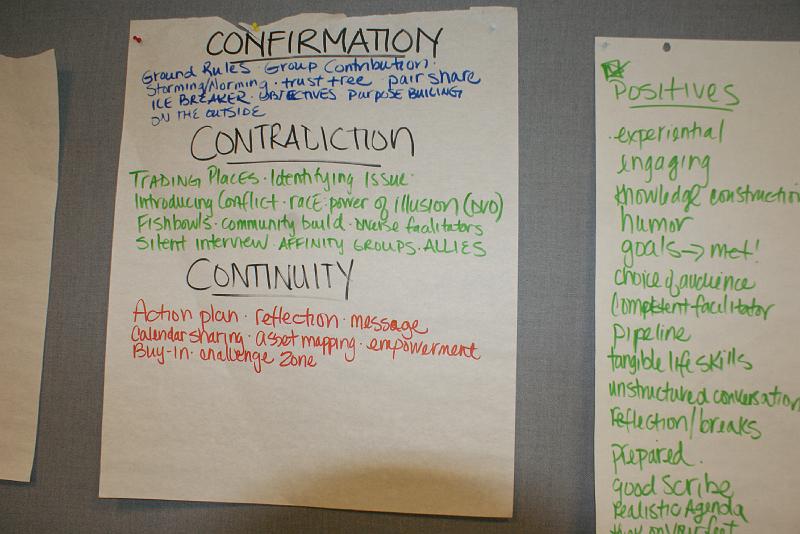 CONFIRMATION
Ground Rules Group Contribution:
Storming/Norming · trust tree pair share
ICE BREAKER · OBJECTIVES PURPOSE BUILING
ON THE OUTSIDE
CONTRADICTION
TRADING PLACES · Identifying Issue ·
Introducing Conflict · race: power of illusion (DVD)
Fishbowls · community build · Diverse facilitators
Silent interview · AFFINITY GROUPS · ALLIES
CONTINUITY
Action plan · reflection · message
Calendar sharing · asset mapping · empowerment
Buy-In · challenge Zone
POSITIVES
· experiential
engaging
Knowledge construction
humor
goals → met!
choice of audience
Competent facilitator
pipeline
tangible life skills
unstructured conversation
reflection/breaks
prepared.
good Scribe
Realistic Agenda